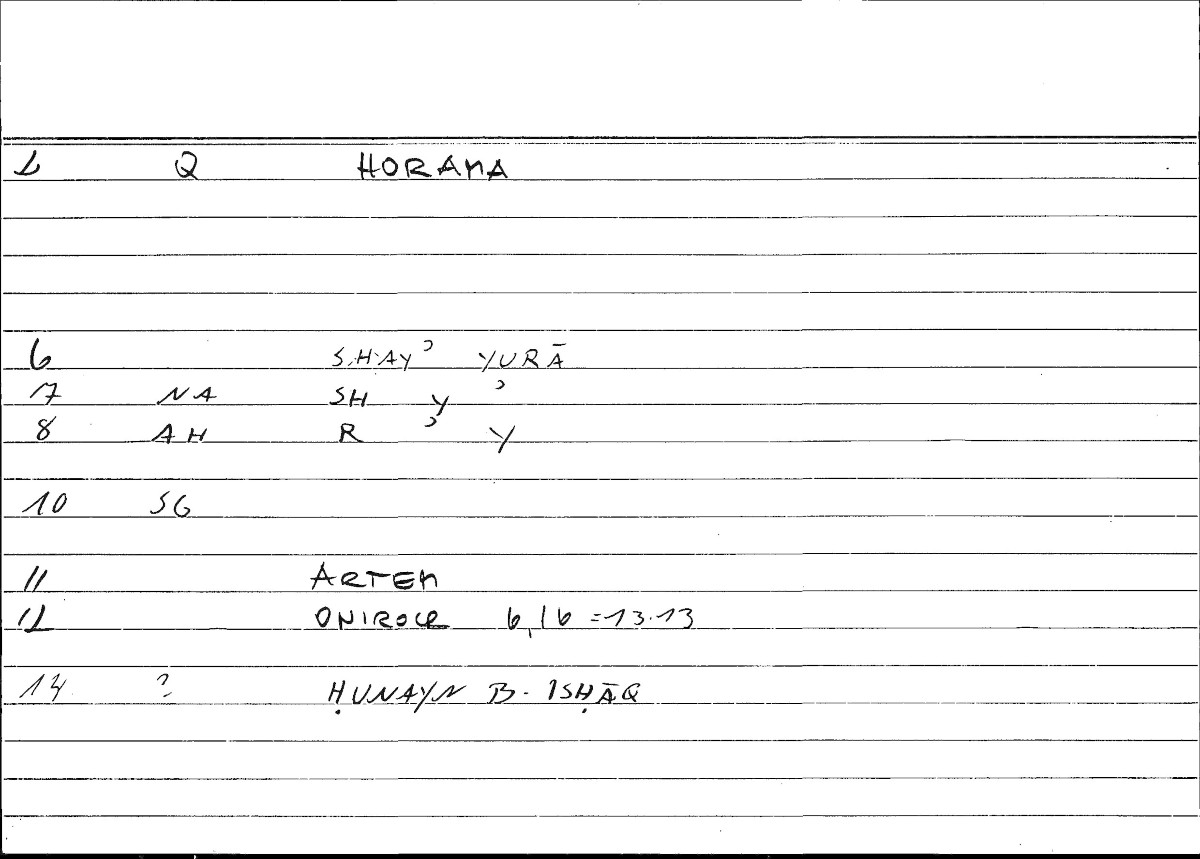 1 Q HORAMA
6 SHAYʾ YURĀ
7 NA SH Y ʾ
8 AH R ʾ Y
10 SG
11 ARTEM
12 ONIROCR 6,16 = 13.13
14 ? ḤUNAYN B. ISḤĀQ